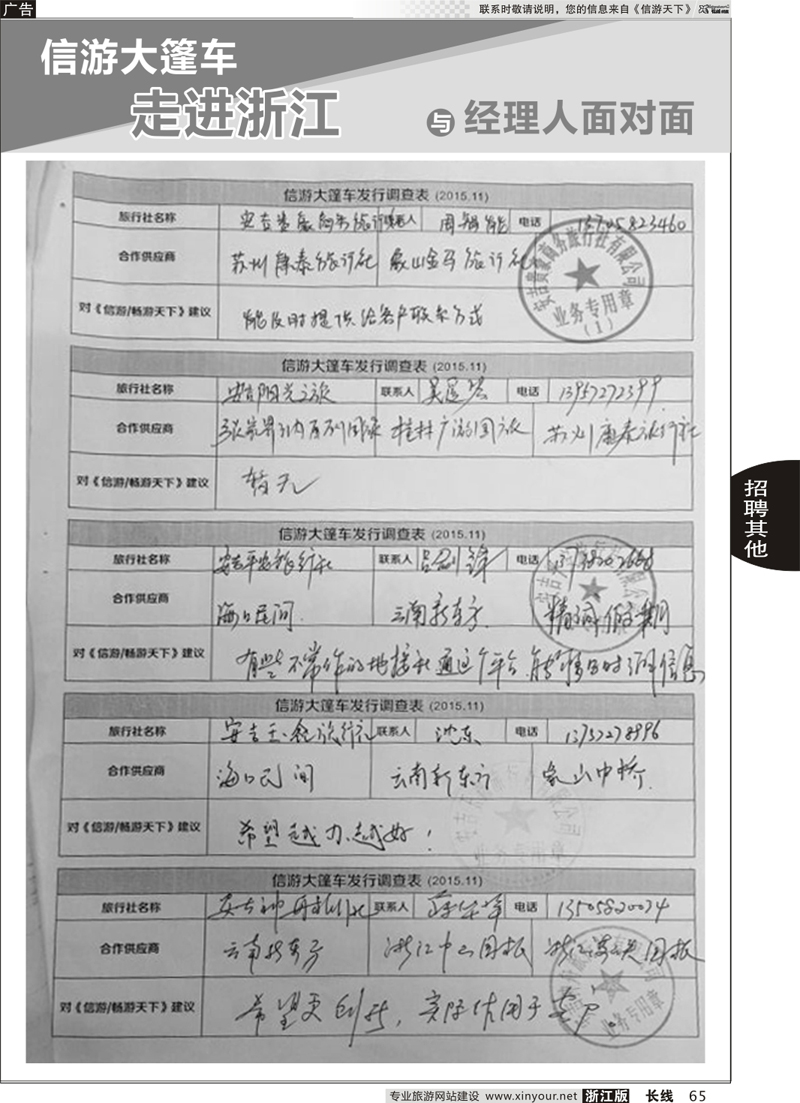 广告
联系时敬请说明，您的信息来自《信游天下》
信游大篷车
走进浙江 与 经理人面对面
信游大篷车发行调查表 (2015.11)
旅行社名称 联系人 电话
合作供应商 苏州康泰旅行社 象山金马旅行社
对《信游/畅游天下》建议 能及时提供给客户联系方式
安吉贵豪商务旅行社有限公司
业务专用章
(1)
信游大篷车发行调查表 (2015.11)
旅行社名称 安吉阳光之旅 联系人 电话 13957272399
合作供应商 桂林广游国旅 苏州康泰旅行社
对《信游/畅游天下》建议 暂无
信游大篷车发行调查表 (2015.11)
旅行社名称 联系人 电话
合作供应商 海口民间 云南新东方
对《信游/畅游天下》建议 有些不常作的地接社通过这个平台
信游大篷车发行调查表 (2015.11)
旅行社名称 联系人 沈东 电话 13757278996
合作供应商 海口民间 云南新东方 象山中桥
对《信游/畅游天下》建议 希望越办越好！
业务专用章
信游大篷车发行调查表 (2015.11)
旅行社名称 联系人 电话 13505820074
合作供应商 云南新东方 浙江中山国旅
对《信游/畅游天下》建议 希望更创新，实际作用于客户。
业务专用章
招聘其他
专业旅游网站建设 www.xinyour.net 浙江版 长线 65